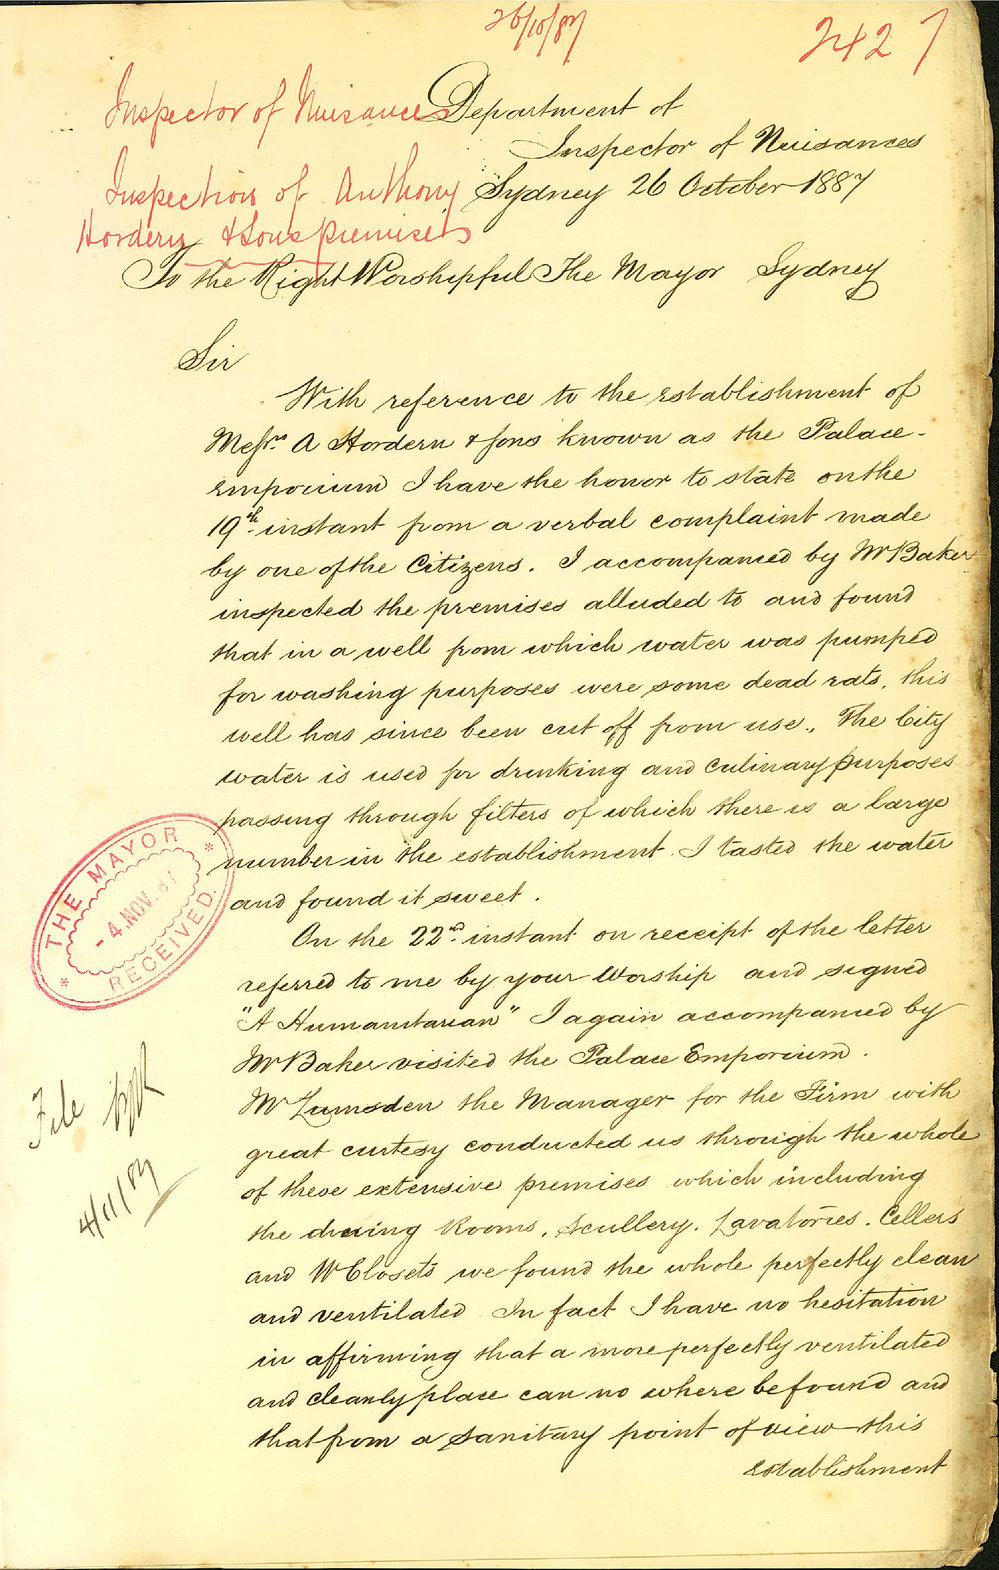 26/10/87
2427
Inspector of Nuisances
Department of
Inspector of Nuisances
Inspection of Anthony
Hordern & Sons premises
Sydney 26 October 1887
To the Right Worshipful The Mayor Sydney
Sir
With reference to the establishment of
Messrs. A Hordern & Sons known as the Palace
Emporium I have the honor to state on the
19th instant from a verbal complaint made
by one of the Citizens. I accompanied by Mr Baker
inspected the premises alluded to and found
that in a well from which water was pumped
for washing purposes were some dead rats, this
well has since been cut off from use., The City
water is used for drinking and culinary purposes
passing through filters of which there is a large
number in the establishment. I tasted the water
and found it sweet.
On the 22nd. instant on receipt of the letter
referred to me by your Worship and signed
"A Humanitarian" I again accompanied by
Mr Baker visited the Palace Emporium.
Mr Lumsden the Manager for the Firm with
great curtesy conducted us through the whole
of these extensive premises which including
the dining Rooms, Scullery, Lavatories. Cellers
and WClosets we found the whole perfectly clean
and ventilated In fact I have no hesitation
in affirming that a more perfectly ventilated
and cleanly place can no where be found and
that from a sanitary point of view this
establishment
THE MAYOR
-4.NOV.87
RECEIVED.
File
4/11/87